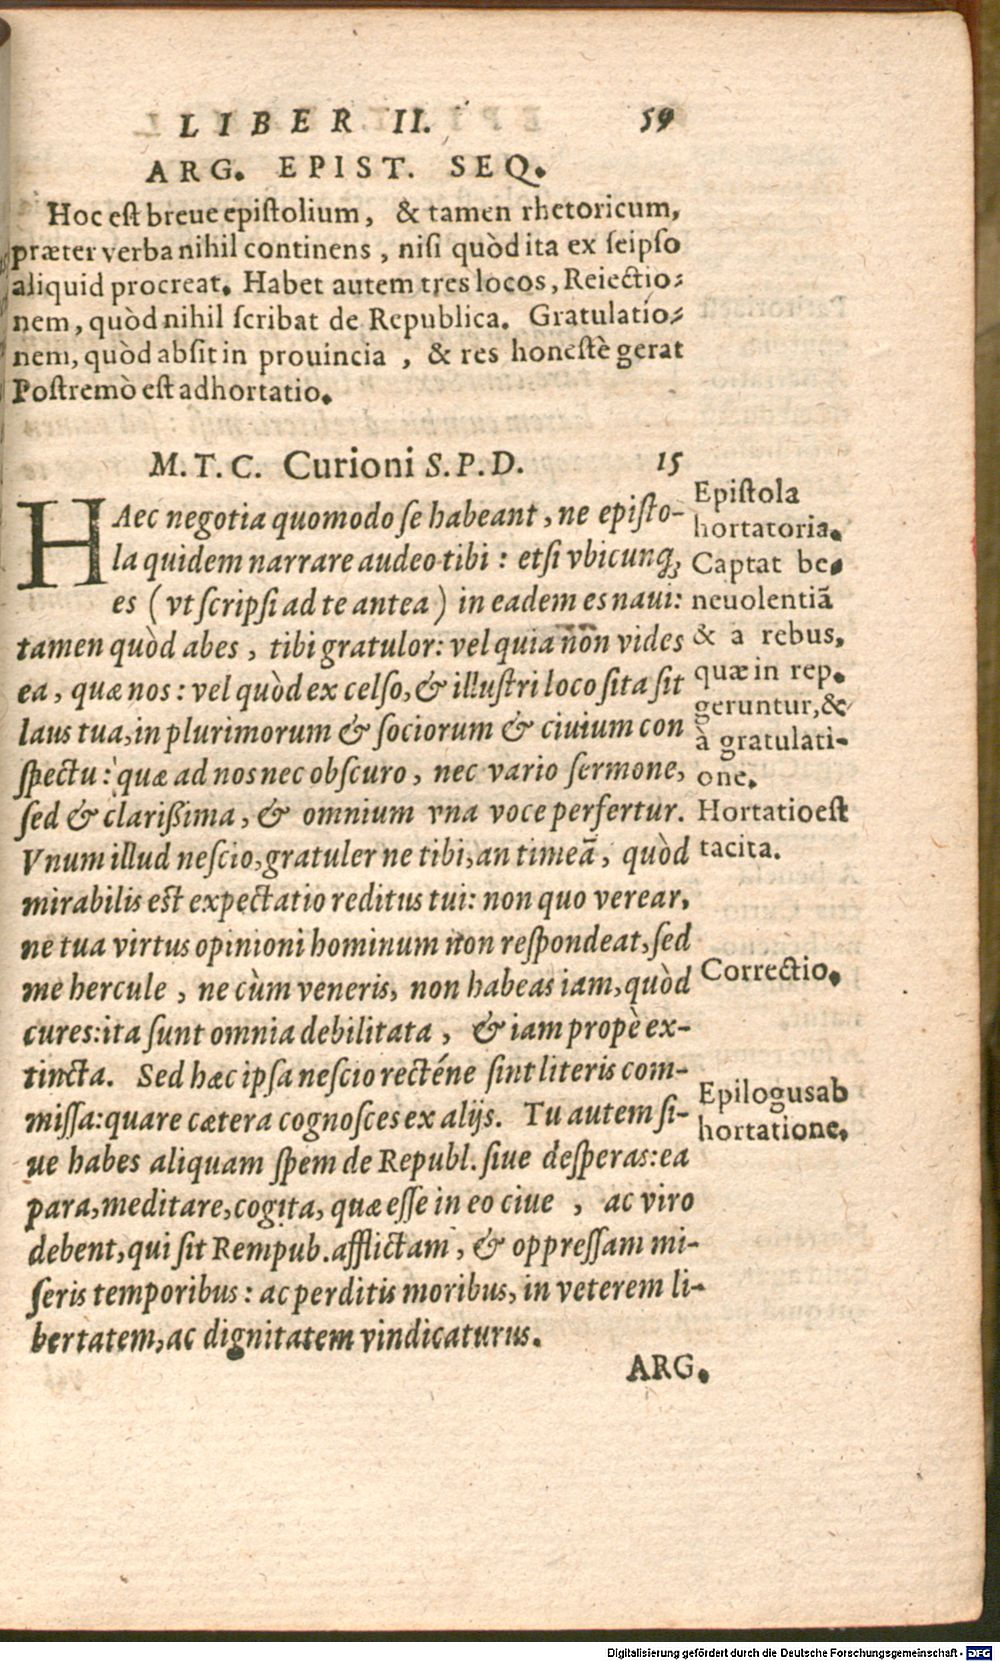 LIBER II. 59
ARG. EPIST. SEQ.
Hoc est breue epistolium, & tamen rhetoricum,
præter verba nihil continens, nisi quòd ita ex seipso
aliquid procreat. Habet autem tres locos, Reiectio-
nem, quòd nihil scribat de Republica. Gratulatio-
nem, quòd absit in prouincia, & res honestè gerat
Postremò est adhortatio.
M. T. C. Curioni S. P. D. 15
HAec negotia quomodo se habeant, ne episto-
la quidem narrare audeo tibi: etsi vbicunq;
es (vt scripsi ad te antea) in eadem es naui:
tamen quòd abes, tibi gratulor: vel quia non vides
ea, quæ nos: vel quòd ex celso, & illustri loco sita sit
laus tua, in plurimorum & sociorum & ciuium con
spectu: quæ ad nos nec obscuro, nec vario sermone,
sed & clarißima, & omnium vna voce perfertur.
Vnum illud nescio, gratuler ne tibi, an timeā, quòd
mirabilis est expectatio reditus tui: non quo verear,
ne tua virtus opinioni hominum non respondeat, sed
me hercule, ne cùm veneris, non habeas iam, quòd
cures: ita sunt omnia debilitata, & iam propè ex-
tincta. Sed hæc ipsa nescio recténe sint literis com-
missa: quare cætera cognosces ex alijs. Tu autem si-
ue habes aliquam spem de Republ. siue desperas: ea
para, meditare, cogita, quæ esse in eo ciue, ac viro
debent, qui sit Rempub. afflictam, & oppressam mi-
seris temporibus: ac perditis moribus, in veterem li-
bertatem, ac dignitatem vindicaturus.
ARG.
Epistola
hortatoria.
Captat be-
neuolentiā
& a rebus,
quæ in rep.
geruntur, &
à gratulati-
one.
Hortatio est
tacita.
Correctio.
Epilogus ab
hortatione.
Digitalisierung gefördert durch die Deutsche Forschungsgemeinschaft - DFG